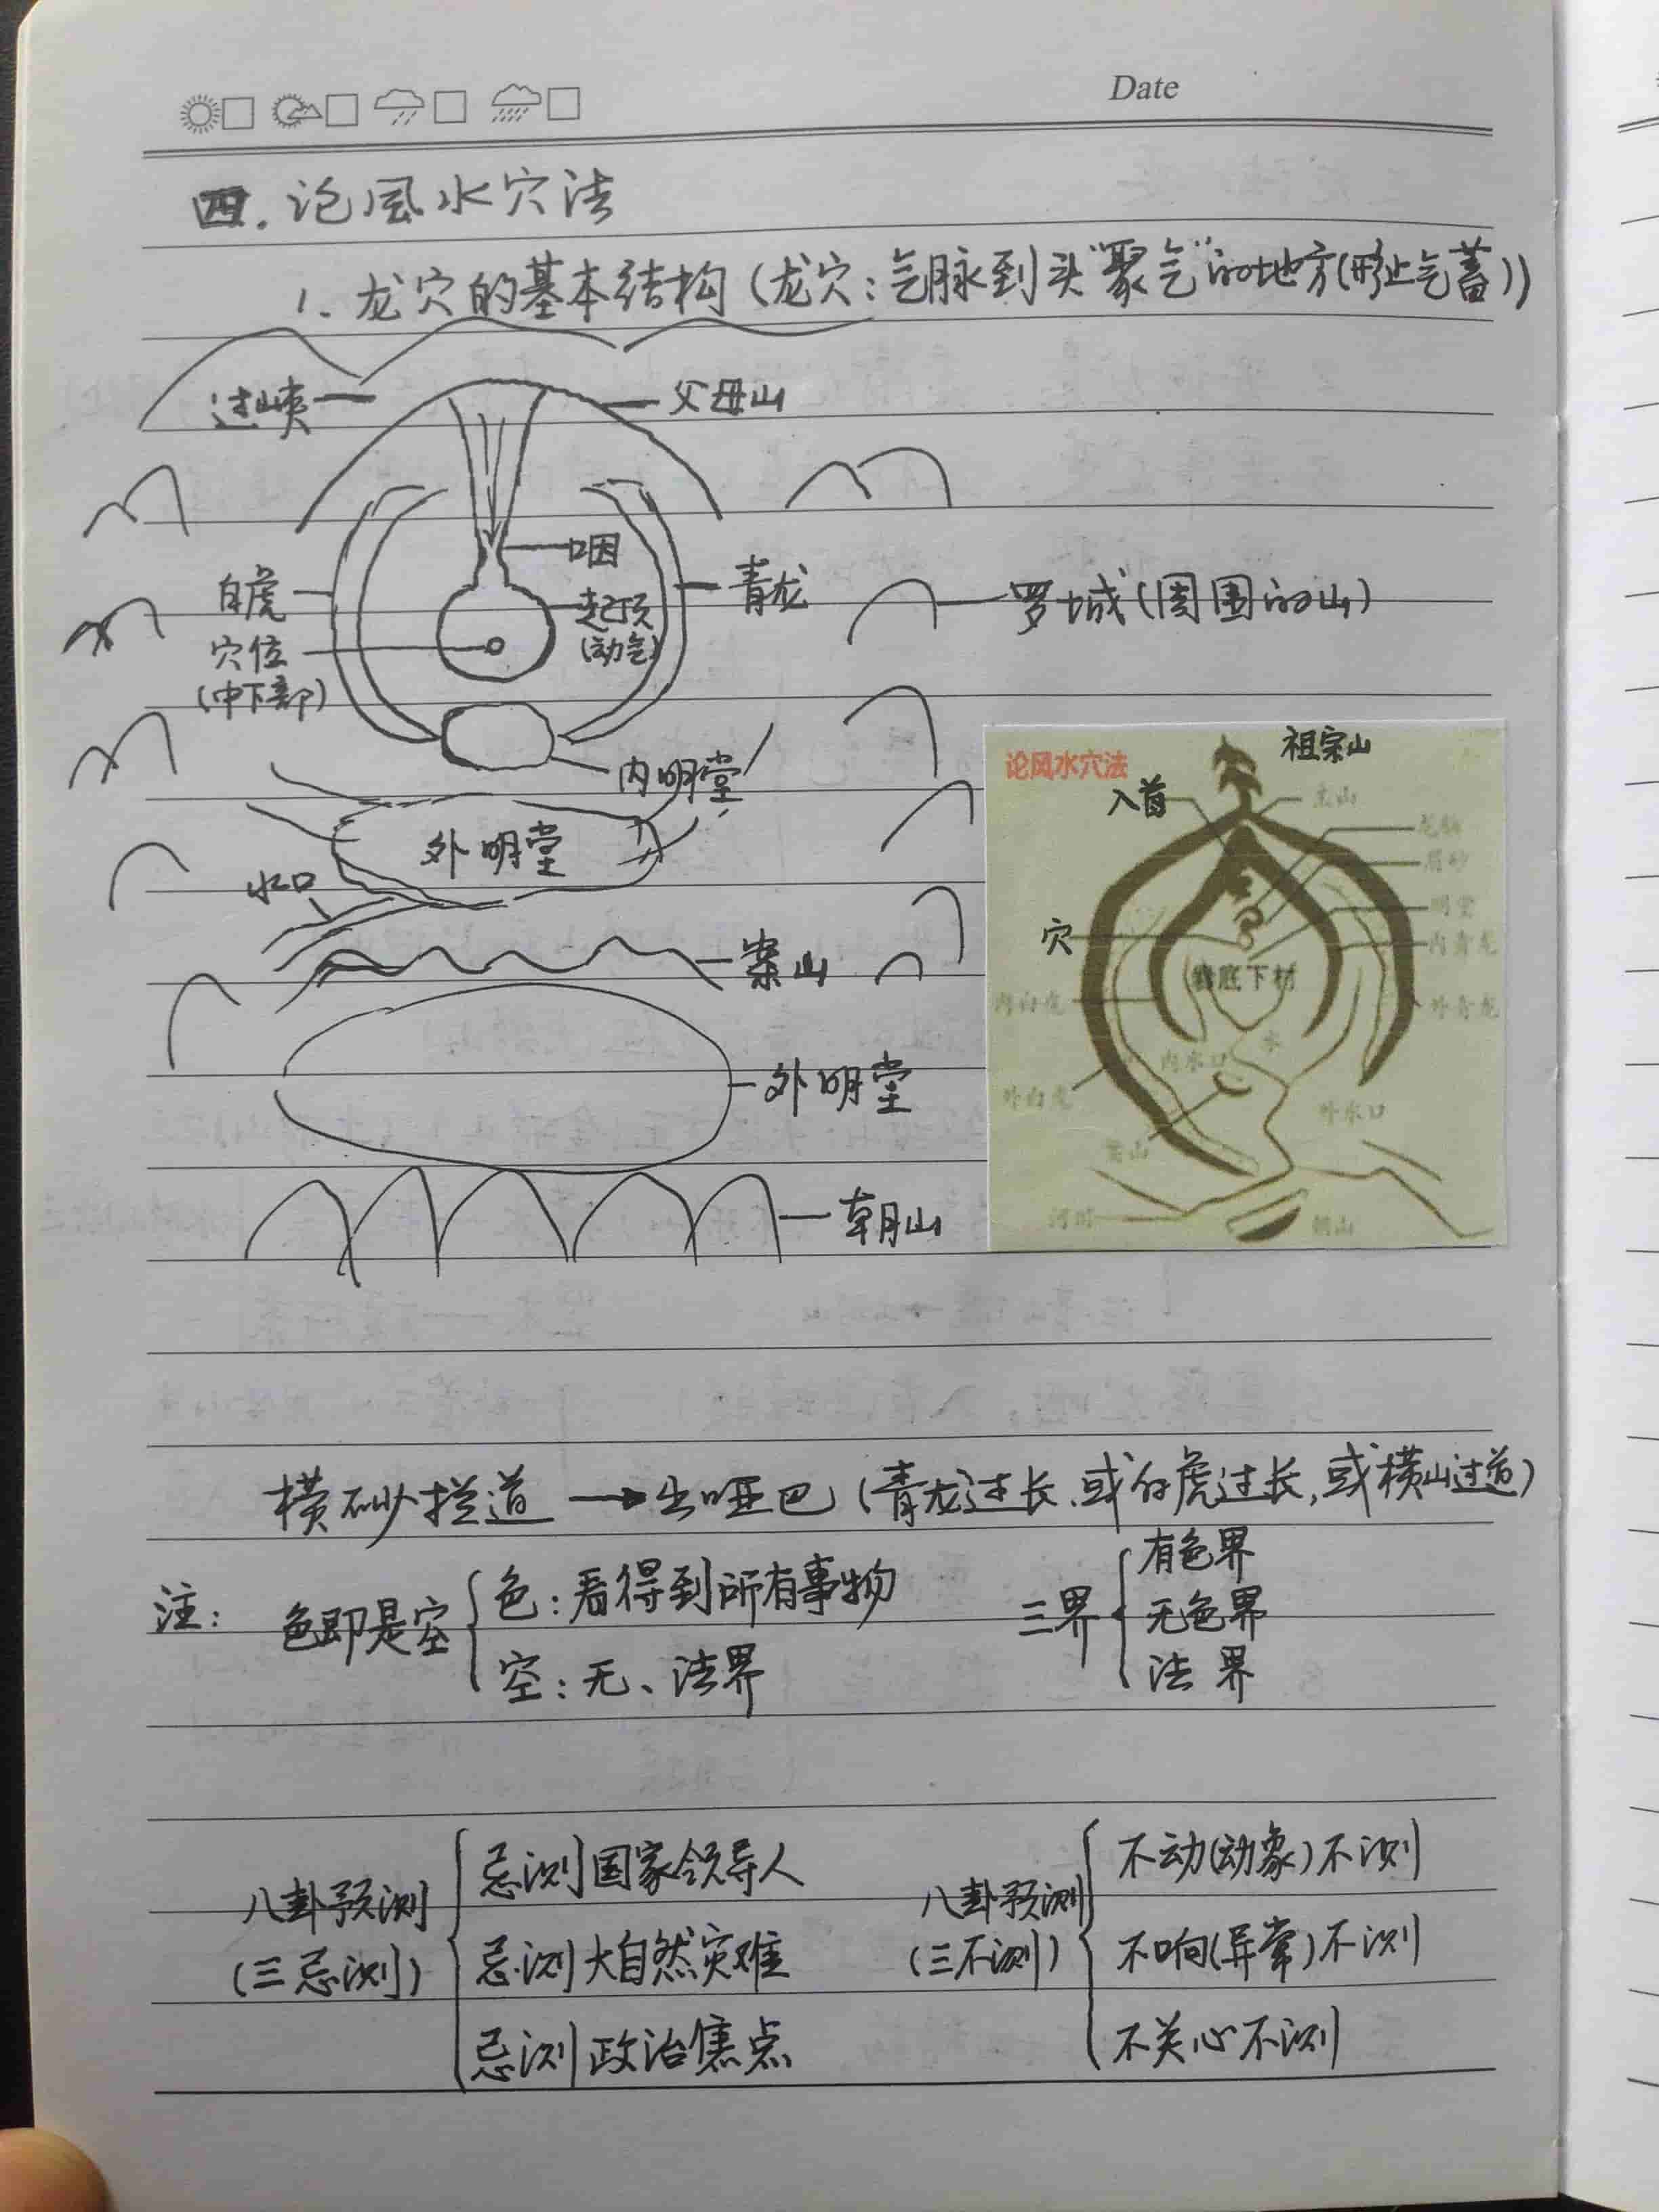 Date
四.论风水穴法
1.龙穴的基本结构(龙穴:气脉到头"聚气"的地方(形止气蓄))
过峡
父母山
咽
白虎
青龙
起顶
(动气)
罗城(周围的山)
穴位
(中下部)
内明堂
外明堂
水口
案山
外明堂
朝山
论风水穴法
祖宗山
入首
眉砂
明堂
穴
内青龙
内白虎
外青龙
水
内水口
外白虎
外水口
案山
河川
朝山
横砂拦道→出哑巴(青龙过长,或白虎过长,或横山过道)
注:
色即是空
色:看得到所有事物
空:无、法界
三界
有色界
无色界
法界
八卦预测
(三忌测)
忌测国家领导人
忌测大自然灾难
忌测政治焦点
八卦预测
(三不测)
不动(动象)不测
不响(异常)不测
不关心不测